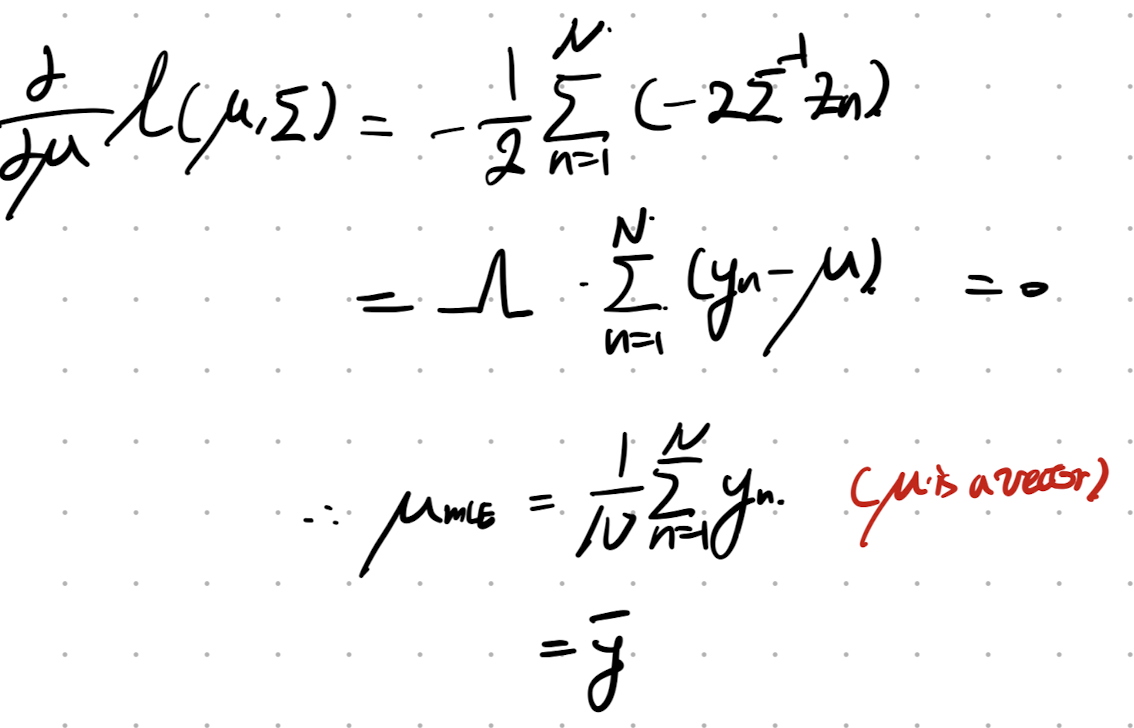 ∂/∂μ l(μ,Σ) = -1/2 Σ_{n=1}^{N} (-2Σ^{-1} z_n)
= Λ · Σ_{n=1}^{N} (y_n - μ) = 0
∴ μ_{MLE} = 1/N Σ_{n=1}^{N} y_n. (μ is a vector)
= ȳ